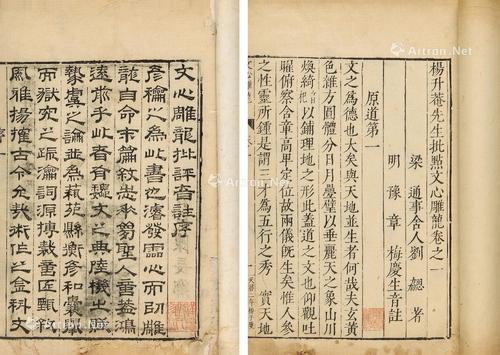 楊升菴先生批點文心雕龍卷之一
梁 通事舍人劉勰著
明 豫章 梅慶生音註
原道第一
文之為德也大矣與天地並生者何哉夫玄黃
色雜方圓體分日月疊璧以垂麗天之象山川
煥綺以鋪理地之形此蓋道之文也仰觀吐
曜俯察含章高卑定位故兩儀既生矣惟人參
之性靈所鍾是謂三才為五行之秀 實天地
文心雕龍批評音註序
彥龢之為此書也濬發靈心而雕
龍自命末篇敘志垂夢聖人意益鴻
遠前乎此者有魏文之典陸機之賦
摯虞之論並為藝苑懸衡彥和囊舉
而獄究之疏瀹詞源搏裁意匠甄
風雅揚搉古今允哉術作之金科文
Artron.Net